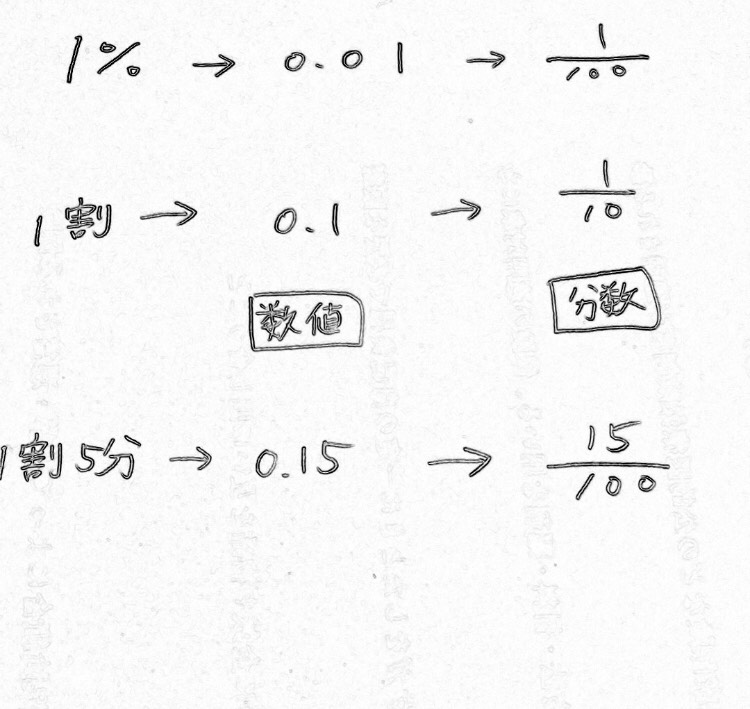 1% → 0.01 → 1/100
1割 → 0.1 → 1/10
数値 分数
1割5分 → 0.15 → 15/100